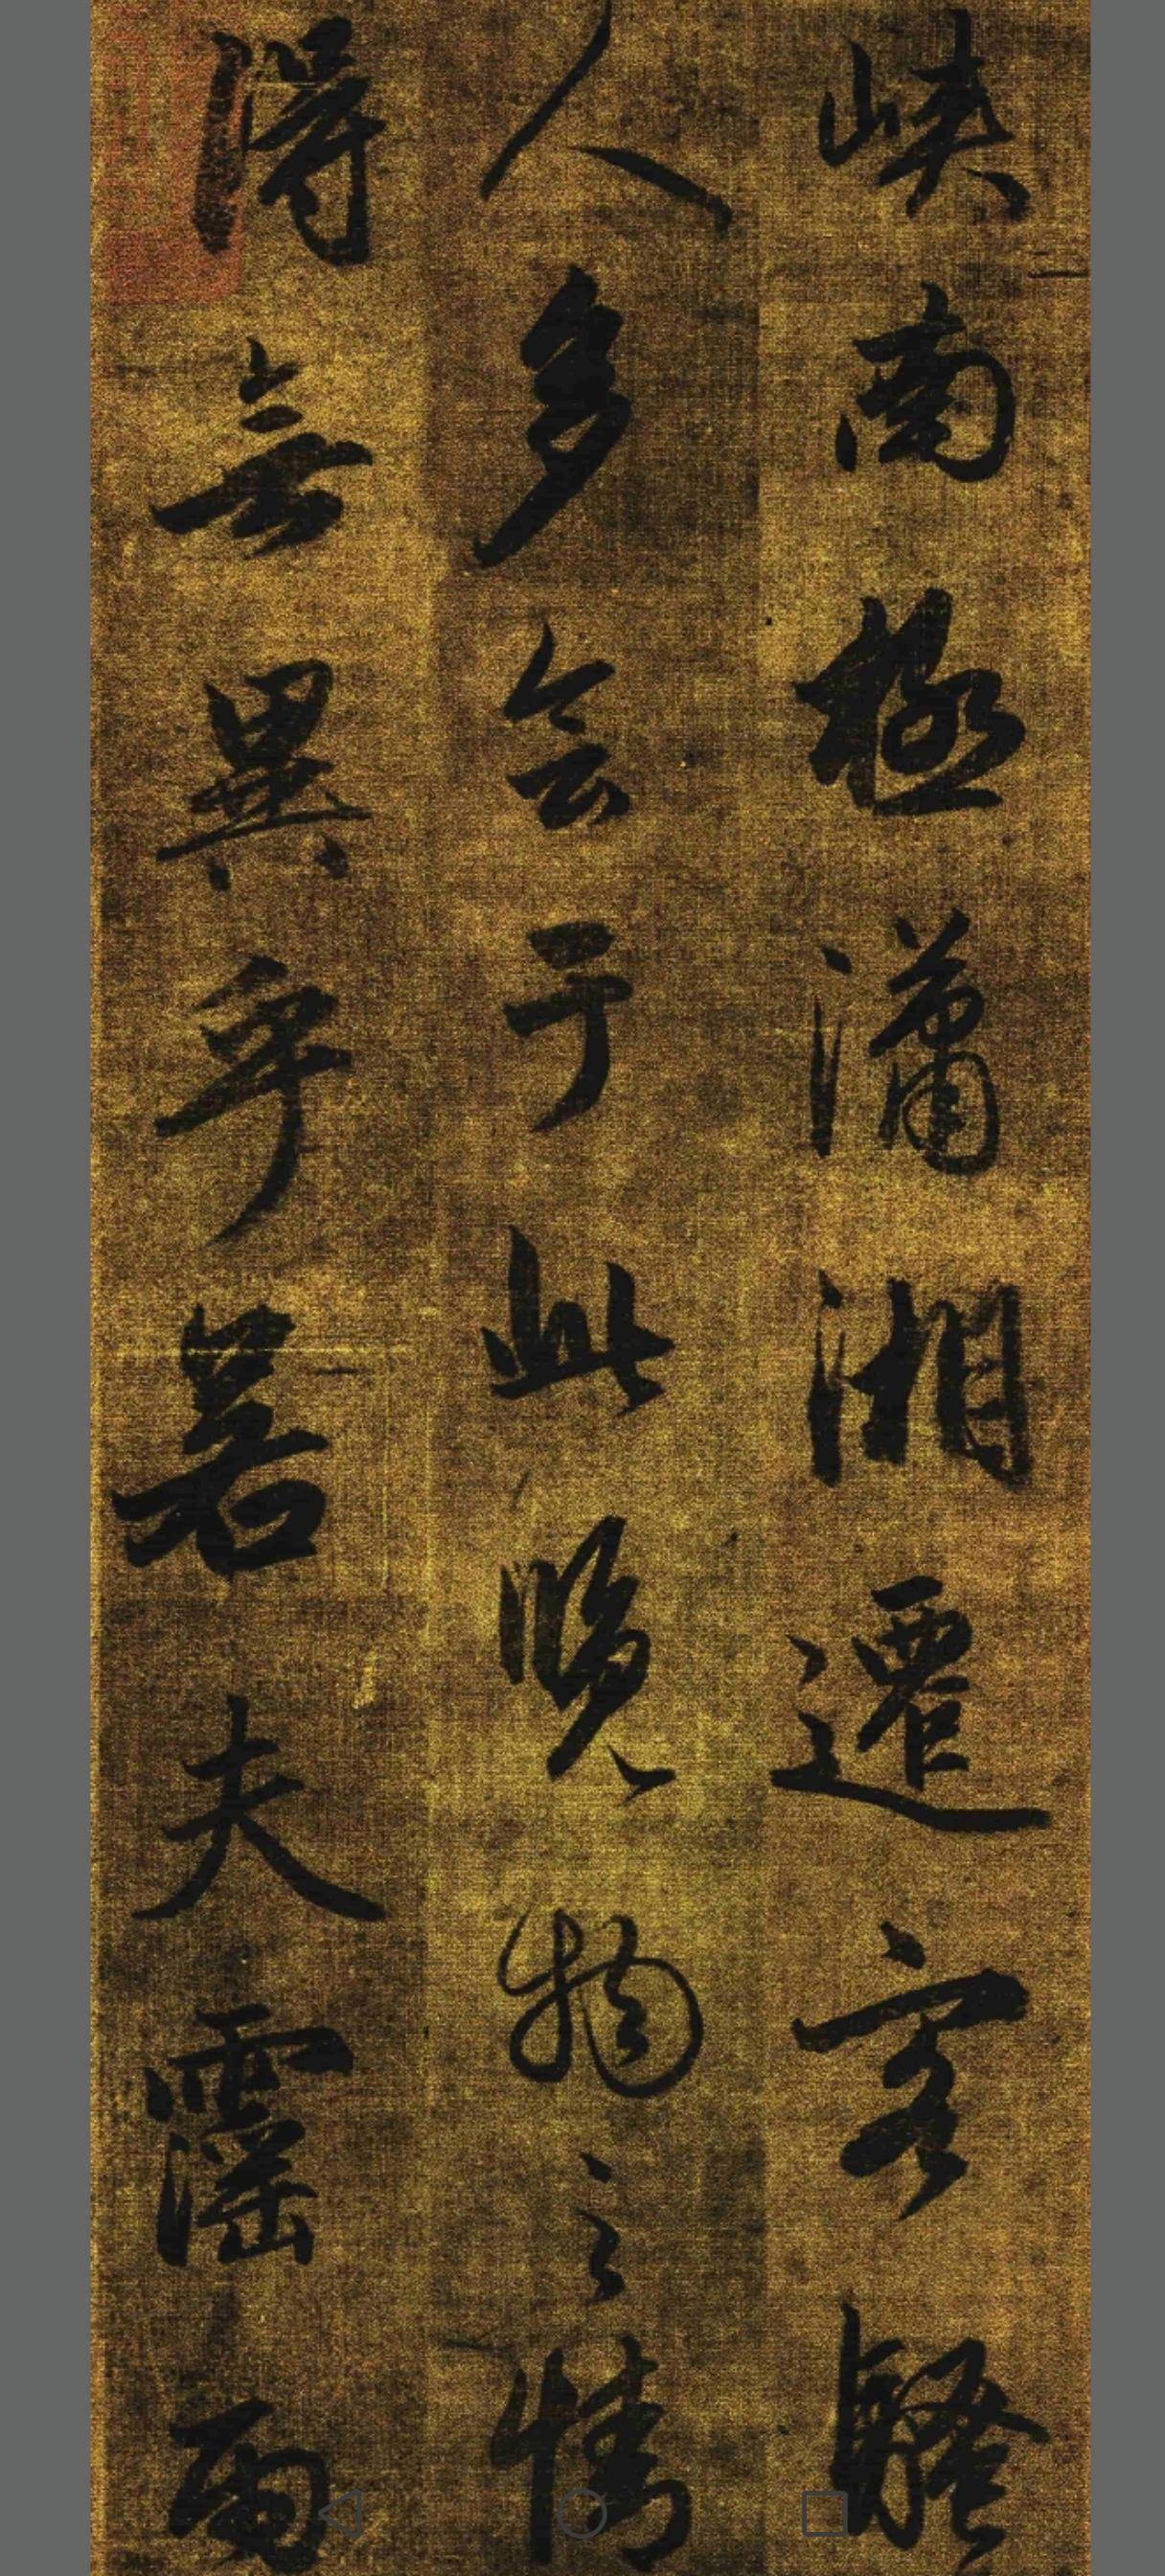 峡南極瀟湘遷客騷
人多会于此覽物之情
得無異乎若夫霪雨